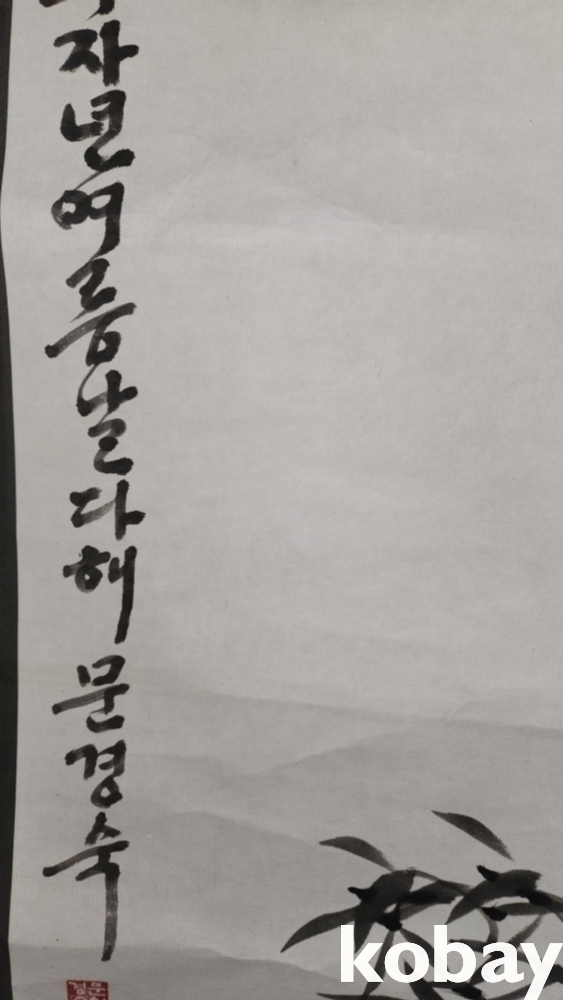 자년여름날다해 문경숙
kobay